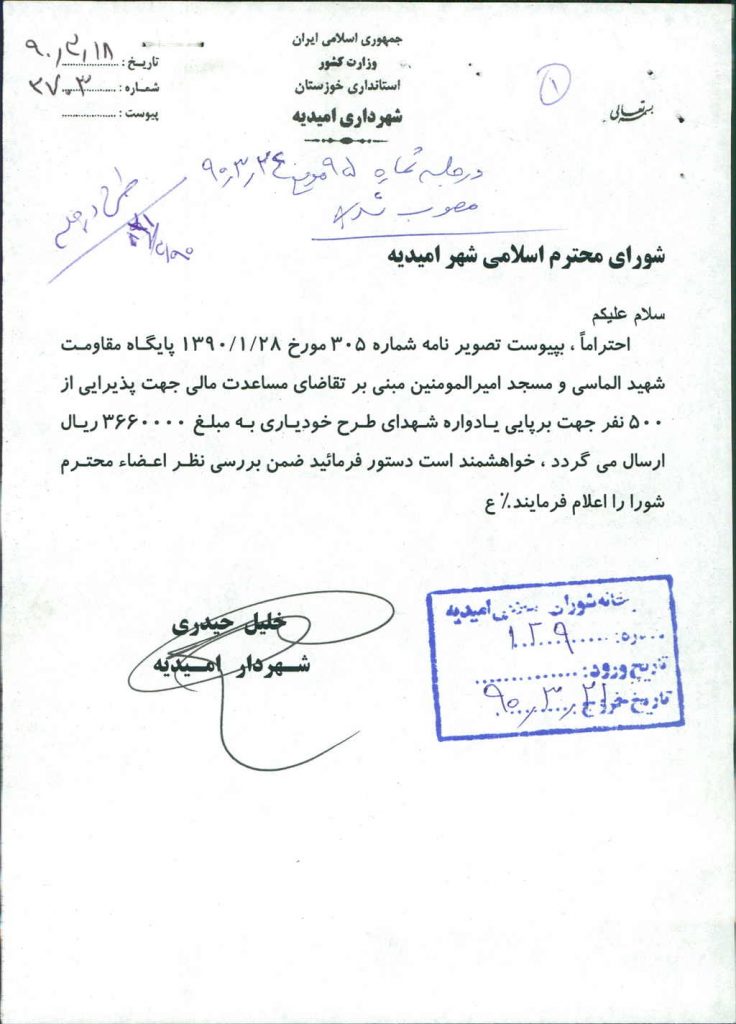 جمهوری اسلامی ایران
وزارت کشور
استانداری خوزستان
شهرداری امیدیه
تاریخ : ۹۰/۳/۱۸
شماره : ۲۷۰۳
پیوست :
بسمه تعالی
۱
در جلسه شماره ۹۵ مورخ ۹۰/۳/۲۴
مصوب شد
طرح در جلسه
شورای محترم اسلامی شهر امیدیه
سلام علیکم
احتراماً ، بپیوست تصویر نامه شماره ۳۰۵ مورخ ۱۳۹۰/۱/۲۸ پایگاه مقاومت
شهید الماسی و مسجد امیرالمومنین مبنی بر تقاضای مساعدت مالی جهت پذیرایی از
۵۰۰ نفر جهت برپایی یادواره شهدای طرح خودیاری به مبلغ ۳۶۶۰۰۰۰ ریال
ارسال می گردد ، خواهشمند است دستور فرمائید ضمن بررسی نظر اعضاء محترم
شورا را اعلام فرمایند.٪ ع
خلیل حیدری
شهردار امیدیه
امیدیه
۱۲۰۹
تاریخ ورود:
تاریخ خروج ۹۰/۳/۲۱